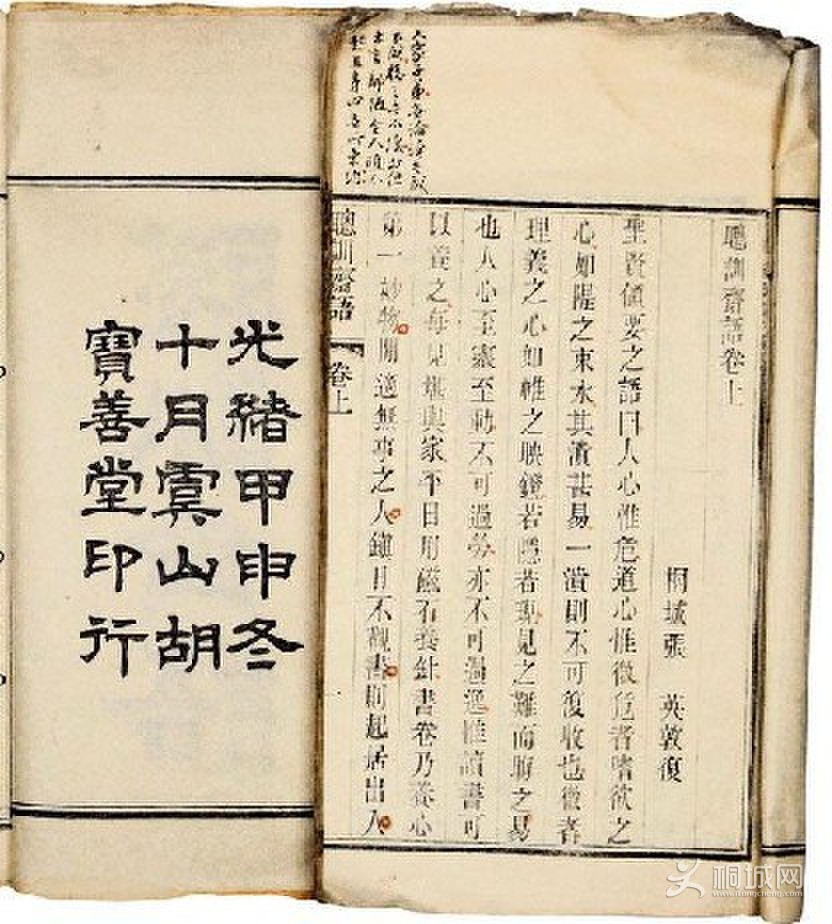 聰訓齋語卷上
桐城張 英敦復
聖賢領要之語曰人心惟危道心惟微危者嗜欲之
心如隄之束水其潰甚易一潰則不可復收也微者
理義之心如帷之映鏡若隱若現見之難而晦之易
也人心至靈至動不可過勞亦不可過逸惟讀書可
以養之每見堪輿家平日用磁石養針書卷乃養心
第一妙物閒適無事之人鎮日不觀書則起居出入
聰訓齋語 卷上
大家子弟無論
光緒甲申冬
十月虞山胡
寶善堂印行
桐城网